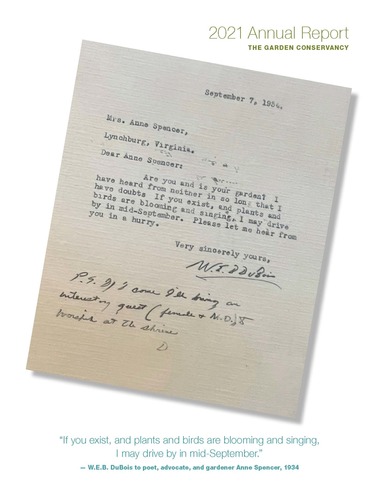 2021 Annual Report
THE GARDEN CONSERVANCY
September 7, 1934.
Mrs. Anne Spencer,
Lynchburg, Virginia.
Dear Anne Spencer:
Are you and is your garden? I
have heard from neither in so long that I
have doubts If you exist, and plants and
birds are blooming and singing, I may drive
by in mid-September. Please let me hear from
you in a hurry.
Very sincerely yours,
W.E.B DuBois
P.S. If I come I'll bring an
interesting guest (female & M.D.) to
worship at the shrine
D
“If you exist, and plants and birds are blooming and singing,
I may drive by in mid-September.”
— W.E.B. DuBois to poet, advocate, and gardener Anne Spencer, 1934